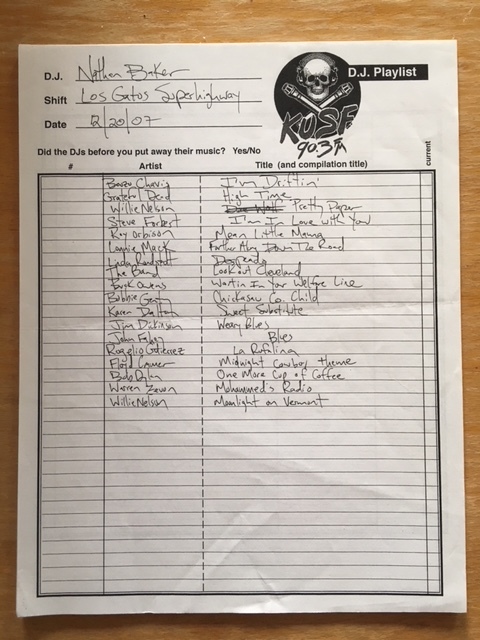 D.J. Nathan Baker
D.J. Playlist
Shift Los Gatos Superhighway
KUSF
Date 2/20/07
90.3 FM
Did the DJs before you put away their music? Yes/No
current
# Artist Title (and compilation title)
Boozoo Chavis I'm Driftin'
Grateful Dead High Time
Willie Nelson Pretty Paper
Steve Forbert I'm In Love With You
Roy Orbison Mean Little Mama
Lonnie Mack Farther Along Down The Road
Linda Ronstadt Desperado
The Band Look Out Cleveland
Buck Owens Waitin In Your Welfare Line
Bobbie Gentry Chickasaw Co. Child
Karen Dalton Sweet Substitute
Jim Dickinson Weary Blues
John Fahey Blues
Rogelio Gutierrez La Rufalina
Floyd Cramer Midnight Cowboy theme
Bob Dylan One More Cup of Coffee
Warren Zevon Mohammed's Radio
Willie Nelson Moonlight on Vermont